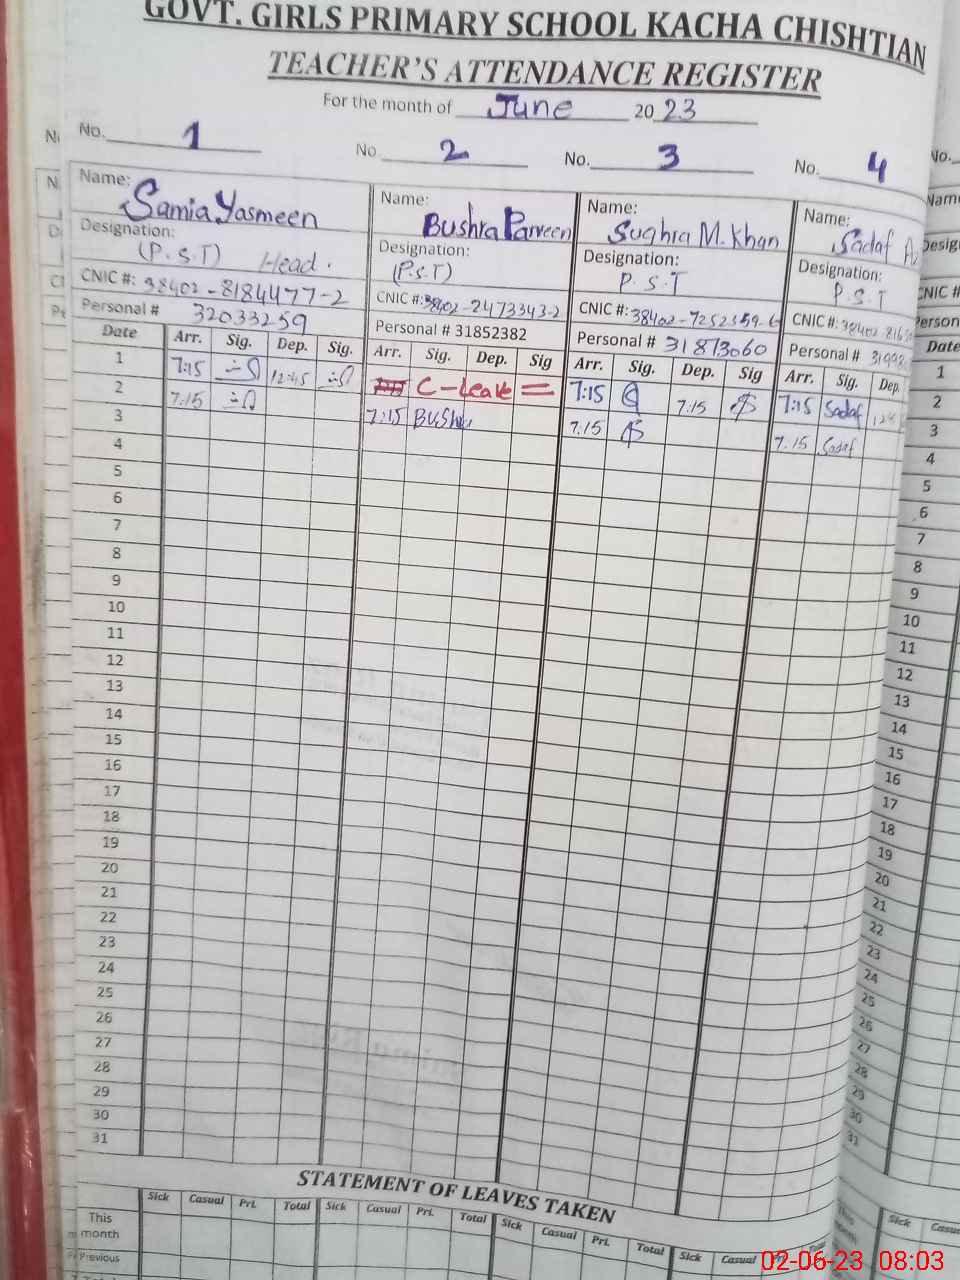 GOVT. GIRLS PRIMARY SCHOOL KACHA CHISHTIAN
TEACHER'S ATTENDANCE REGISTER
For the month of June 2023
No. 1 No. 2 No. 3 No. 4
Name: Samia Yasmeen Name: Bushra Parveen Name: Sughra M. Khan Name: Sadaf
Designation: (P.S.T) Head. Designation: (P.S.T) Designation: P.S.T Designation: P.S.T
CNIC #: 38402-8184477-2 CNIC #: 38402-2473343-2 CNIC #: 38402-7252559-6 CNIC #: 38402-
Personal # 32033259 Personal # 31852382 Personal # 31873060 Personal #
Date Arr. Sig. Dep. Sig. Arr. Sig. Dep. Sig Arr. Sig. Dep. Sig Arr. Sig. Dep. Date
1 7:15 12:45 C-Leave = 7:15 7:15 7:15 Sadaf 1
2 7.15 7:15 Bushra 7.15 7.15 Sadaf 2
3 3
4 4
5 5
6 6
7 7
8 8
9 9
10 10
11 11
12 12
13 13
14 14
15 15
16 16
17 17
18 18
19 19
20 20
21 21
22 22
23 23
24 24
25 25
26 26
27 27
28 28
29 29
30 30
31 31
STATEMENT OF LEAVES TAKEN
Sick Casual Pri. Total Sick Casual Pri. Total Sick Casual Pri. Total Sick Casual Sick
This month
Previous
02-06-23 08:03